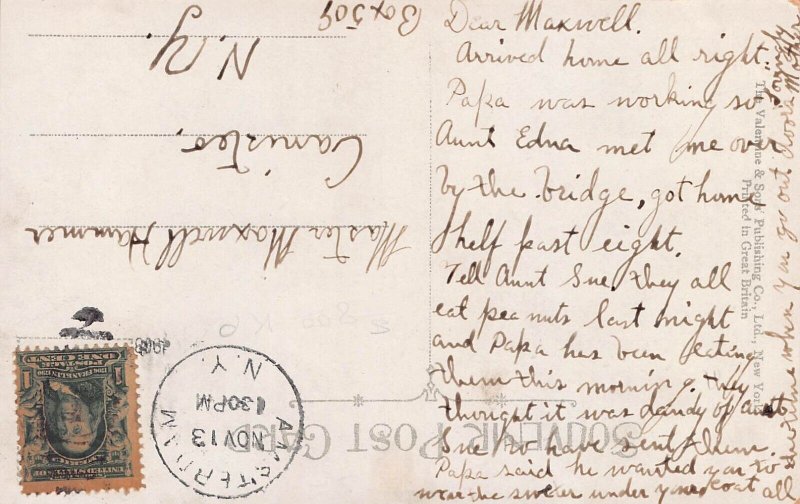 Dear Maxwell.
Arrived home all right.
Papa was working so
Aunt Edna met me over
by the bridge, got home
half past eight.
Tell Aunt Sue they all
eat peanuts last night
and Papa has been eating
them this morning. They
thought it was dandy of aunt
Sue to have sent them.
Papa said he wanted you to
wear the swear under your coat all
the time when you go out doors
Lovingly
Mother
Master Maxwell Hammer
Canisteo,
N.Y.
Box 509
SOUVENIR POST CARD
The Valentine & Sons' Publishing Co., Ltd., New York
Printed in Great Britain
AMSTERDAM
NOV 13
1 30 PM
N.Y.
2
POSTAGE
ONE CENT
1
1